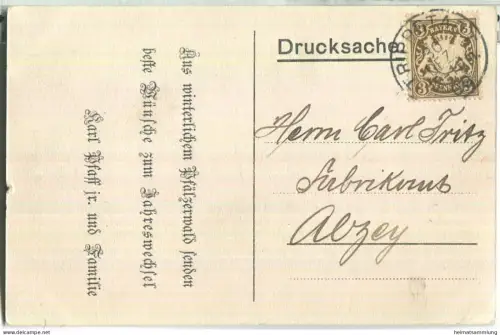 Aus winterlichem Pfälzerwald senden
beste Wünsche zum Jahreswechsel
Karl Pfaff jr. und Familie
Drucksache
BAYERN
3 3
PFENNIG
Herrn Carl Fritz
Fabrikant
Alzey
www.delcampe.net
heimatsammlung.com